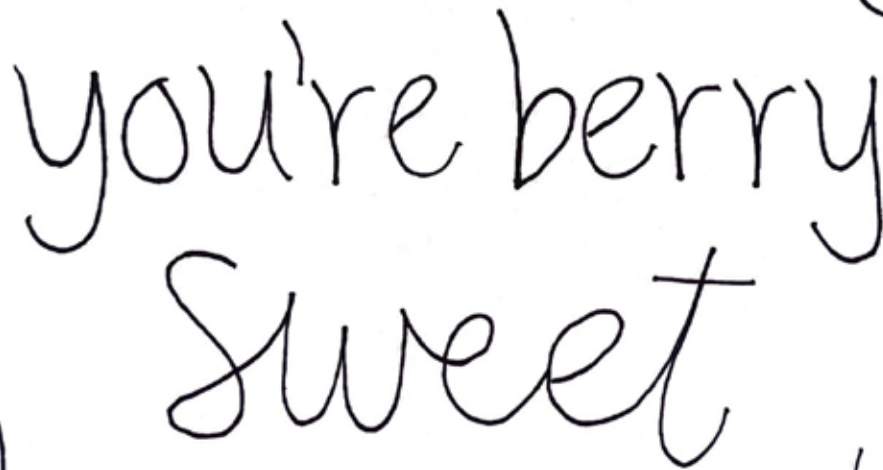 you're berry
sweet